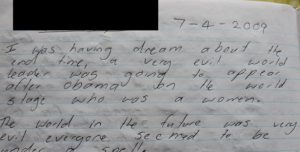 7-4-2009
I was having dream about the
end time, a very evil world
leader was going to appear
after obama on the world
stage who was a women.
The world in the future was very
evil everyone seemed to be
under a spell